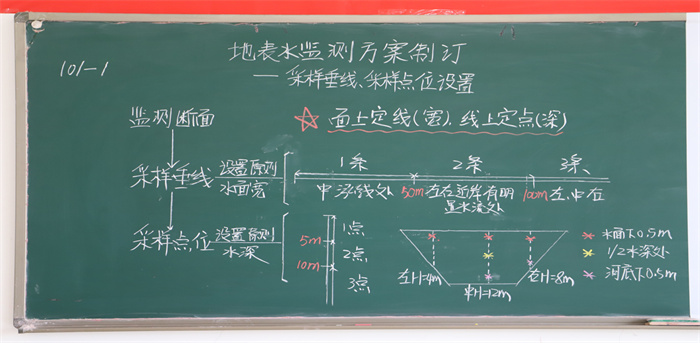 地表水监测方案制订
101-1
——采样垂线、采样点位设置
监测断面
☆ 面上定线(宽)，线上定点(深)
采样垂线 设置原则 水面宽
1条 2条 3条
中泓线处 50m 左右近岸有明显水流处 100m 左、中、右
采样点位 设置原则 水深
1点
5m
2点
10m
3点
左H=4m 中H=12m 右H=8m
* 水面下0.5m
* 1/2水深处
* 河底上0.5m